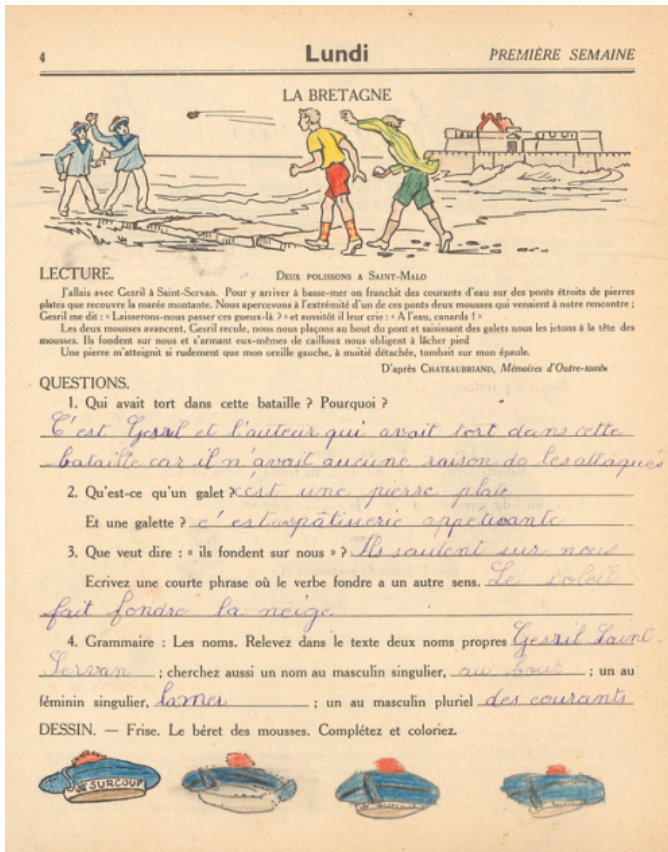 4 Lundi PREMIÈRE SEMAINE
LA BRETAGNE
LECTURE. DEUX POLISSONS A SAINT-MALO
J'allais avec Gesril à Saint-Servan. Pour y arriver à basse-mer on franchit des courants d'eau sur des ponts étroits de pierres
plates que recouvre la marée montante. Nous apercevons à l'extrémité d'un de ces ponts deux mousses qui venaient à notre rencontre ;
Gesril me dit : « Laisserons-nous passer ces gueux-là ? » et aussitôt il leur crie : « A l'eau, canards ! »
Les deux mousses avancent, Gesril recule, nous nous plaçons au bout du pont et saisissant des galets nous les jetons à la tête des
mousses. Ils fondent sur nous et s'armant eux-mêmes de cailloux nous obligent à lâcher pied
Une pierre m'atteignit si rudement que mon oreille gauche, à moitié détachée, tombait sur mon épaule.
D'après CHATEAUBRIAND, Mémoires d'Outre-tombe
QUESTIONS.
1. Qui avait tort dans cette bataille ? Pourquoi ?
C'est Gesril et l'auteur qui avait tort dans cette
bataille car il n'avait aucune raison de les attaqués
2. Qu'est-ce qu'un galet ? c'est une pierre plate
Et une galette ? c'est une pâtisserie appeticante
3. Que veut dire : « ils fondent sur nous » ? Ils sautent sur nous
Ecrivez une courte phrase où le verbe fondre a un autre sens. Le soleil
fait fondre la neige
4. Grammaire : Les noms. Relevez dans le texte deux noms propres Gesril Saint-
Servan ; cherchez aussi un nom au masculin singulier, au bout ; un au
féminin singulier, la mer ; un au masculin pluriel des courants
DESSIN. — Frise. Le béret des mousses. Complétez et coloriez.
SURCOUF